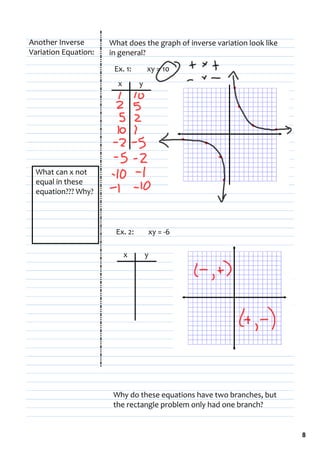 Another Inverse
Variation Equation:
What does the graph of inverse variation look like
in general?
Ex. 1: xy = 10
+ × +
- × -
x y
1 10
2 5
5 2
10 1
-2 -5
-5 -2
-10 -1
-1 -10
What can x not
equal in these
equation??? Why?
Ex. 2: xy = -6
x y
(-,+)
(+,-)
Why do these equations have two branches, but
the rectangle problem only had one branch?
8